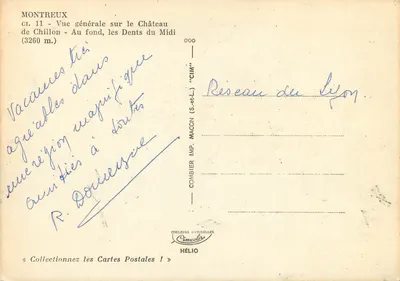 MONTREUX
CS. 11 - Vue générale sur le Château
de Chillon - Au fond, les Dents du Midi
(3260 m.)
Vacances très
agréables dans
une région magnifique
amitiés à toutes
R. Domergue
« Collectionnez les Cartes Postales ! »
COMBIER IMP. MACON (S.-et-L.) "CIM"
Réseau du Lyon
COULEURS NATURELLES
Cimcolor
HÉLIO